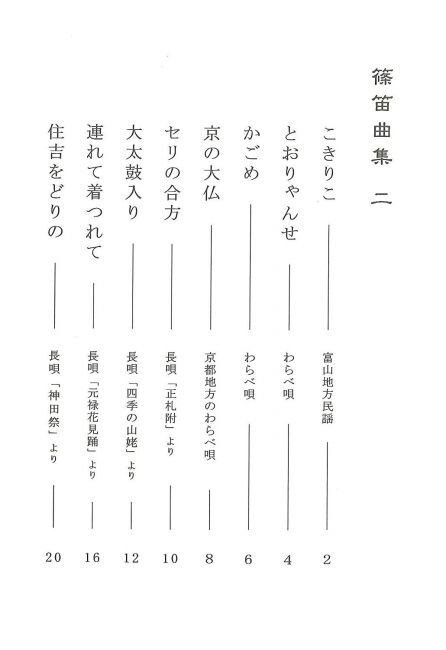 篠笛曲集 二
こきりこ 富山地方民謡 2
とおりゃんせ わらべ唄 4
かごめ わらべ唄 6
京の大仏 京都地方のわらべ唄 8
セリの合方 長唄「正札附」より 10
大太鼓入り 長唄「四季の山姥」より 12
連れて着つれて 長唄「元禄花見踊」より 16
住吉をどりの 長唄「神田祭」より 20